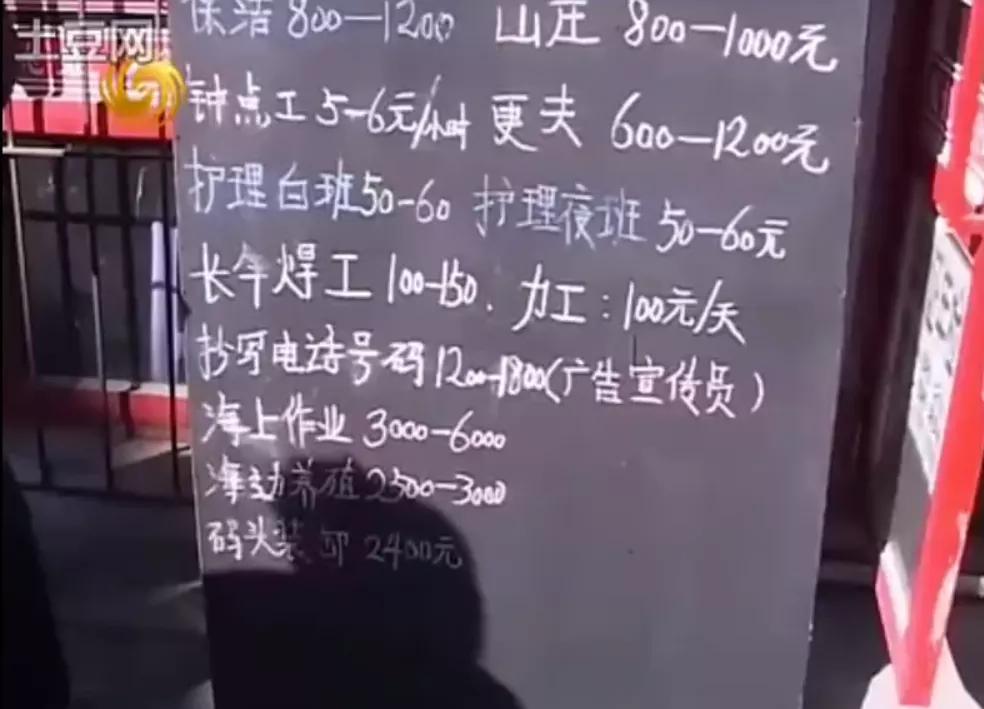 土豆网
保洁 800—1200 山庄 800—1000元
钟点工 5-6元/小时 更夫 600—1200元
护理白班50-60 护理夜班 50-60元
长年焊工 100-150. 力工:100元/天
抄写电话号码1200-1800(广告宣传员)
海上作业 3000-6000
海边养殖2500-3000
码头装卸 2400元